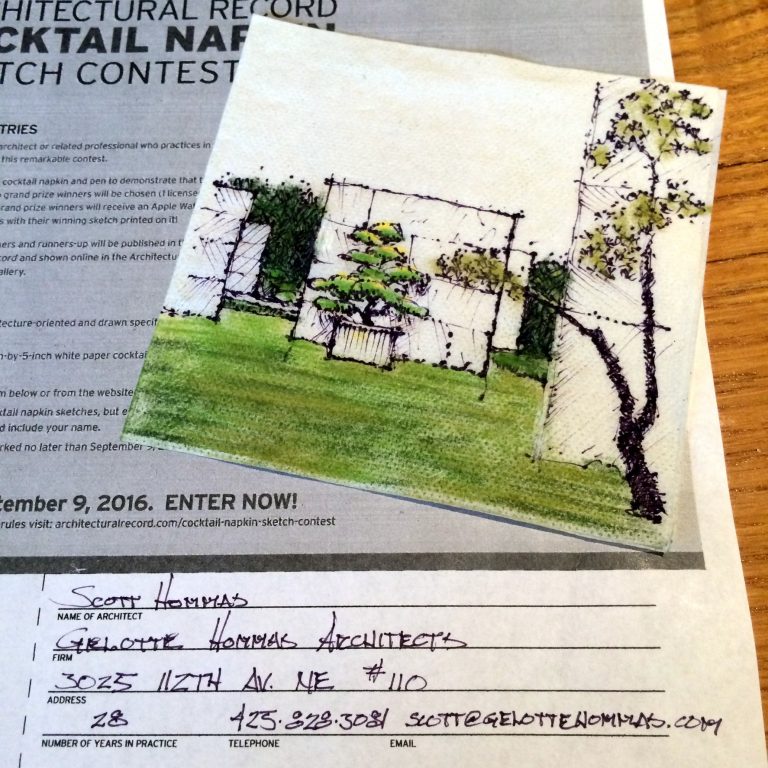 CHITECTURAL RECORD
CKTAIL NAPKIN
TCH CONTEST
TRIES
architect or related professional who practices in
this remarkable contest.
cocktail napkin and pen to demonstrate that t
grand prize winners will be chosen (1 license
rand prize winners will receive an Apple Wat
s with their winning sketch printed on it!
ners and runners-up will be published in t
cord and shown online in the Architectu
allery.
tecture-oriented and drawn specif
-by-5-inch white paper cockta
m below or from the website
ktail napkin sketches, but e
d include your name.
rked no later than September 9, 2
tember 9, 2016. ENTER NOW!
rules visit: architecturalrecord.com/cocktail-napkin-sketch-contest
SCOTT HOMMAS
NAME OF ARCHITECT
GELOTTE HOMMAS ARCHITECTS
FIRM
3025 112TH AV. NE #110
ADDRESS
28 425.828.3081 SCOTT@GELOTTEHOMMAS.COM
NUMBER OF YEARS IN PRACTICE TELEPHONE EMAIL